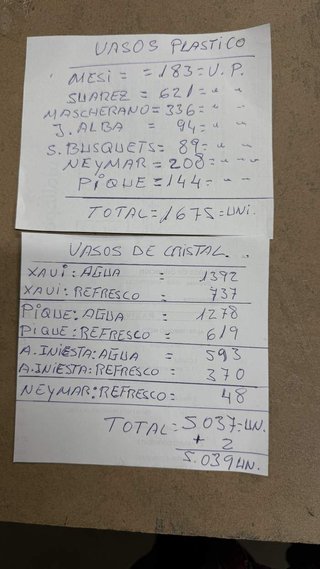 VASOS PLASTICO
MESI = = 183 = U.P.
SUAREZ = 621 = " "
MASCHERANO = 336 = " "
J. ALBA = 94 = " "
S. BUSQUETS = 89 = " "
NEYMAR = 208 = " " "
PIQUE = 144 = " "
TOTAL = 1675 = UNI.
VASOS DE CRISTAL.
XAVI: AGUA = 1392
XAVI: REFRESCO = 737
PIQUE: AGUA = 1278
PIQUE: REFRESCO = 619
A. INIESTA: AGUA = 593
A. INIESTA: REFRESCO = 370
NEYMAR: REFRESCO = 48
TOTAL = 5.037 = UN.
+ 2
5.039 UN.